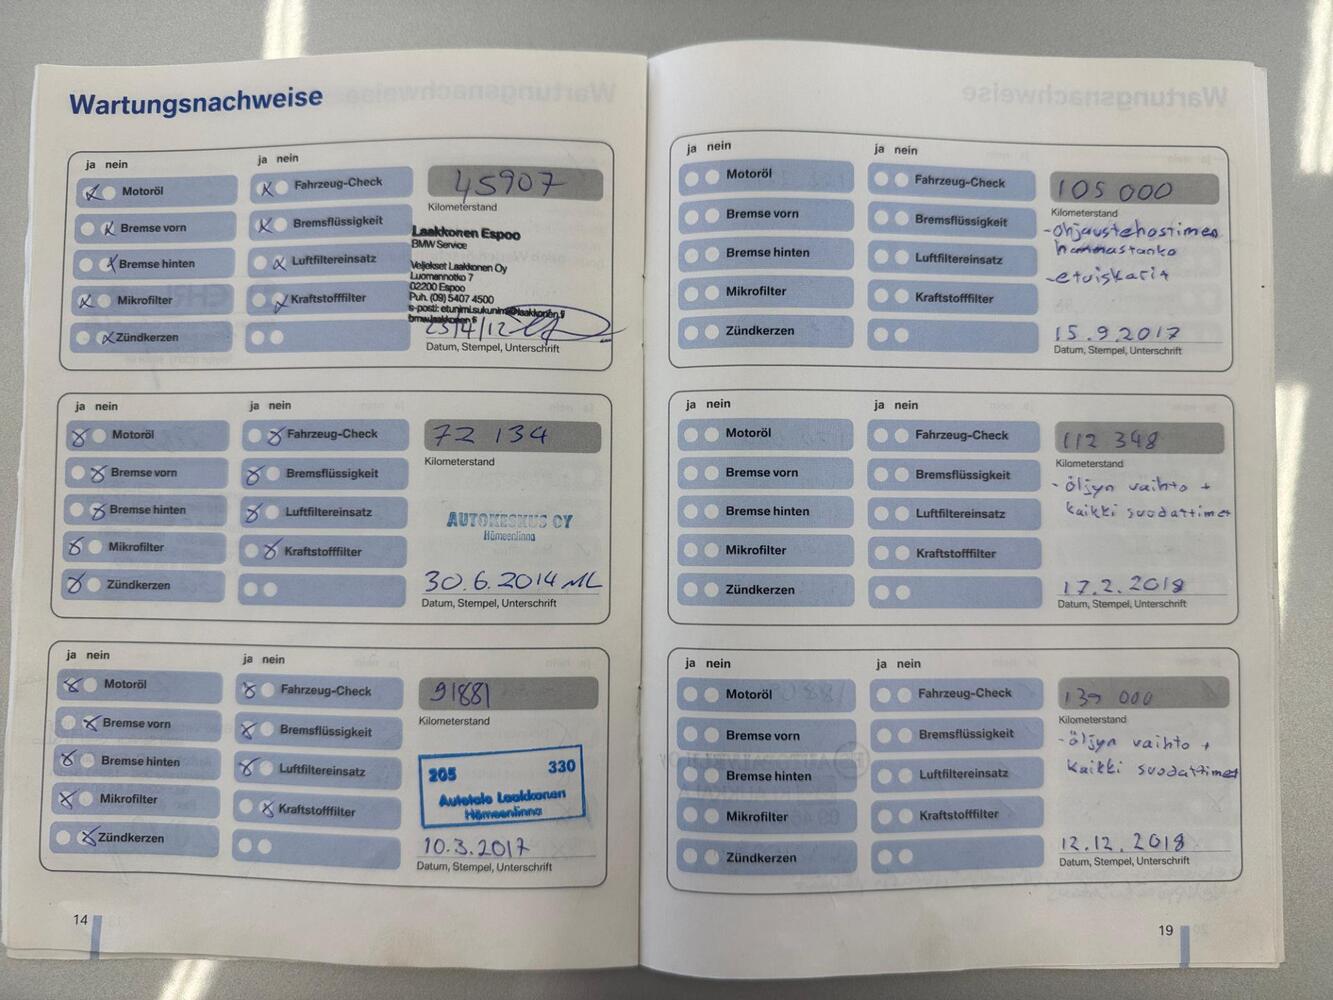 Wartungsnachweise
ja nein
ja nein
Motoröl
Fahrzeug-Check
45907
Kilometerstand
Bremse vorn
Bremsflüssigkeit
Laakkonen Espoo
BMW Service
Bremse hinten
Luftfiltereinsatz
Veljekset Laakkonen Oy
Luomannotko 7
02200 Espoo
Mikrofilter
Kraftstofffilter
Puh. (09) 5407 4500
s-posti: etunimi.sukunimi@laakkonen.fi
bmw.laakkonen.fi
Zündkerzen
23/4/12
Datum, Stempel, Unterschrift
ja nein
ja nein
Motoröl
Fahrzeug-Check
72 134
Kilometerstand
Bremse vorn
Bremsflüssigkeit
Bremse hinten
Luftfiltereinsatz
AUTOKESKUS OY
Hämeenlinna
Mikrofilter
Kraftstofffilter
Zündkerzen
30.6.2014 ML
Datum, Stempel, Unterschrift
ja nein
ja nein
Motoröl
Fahrzeug-Check
91881
Kilometerstand
Bremse vorn
Bremsflüssigkeit
Bremse hinten
Luftfiltereinsatz
205 330
Autotalo Laakkonen
Hämeenlinna
Mikrofilter
Kraftstofffilter
Zündkerzen
10.3.2017
Datum, Stempel, Unterschrift
14
ja nein
ja nein
Motoröl
Fahrzeug-Check
105 000
Kilometerstand
Bremse vorn
Bremsflüssigkeit
-ohjaustehostimen
hammastanko
Bremse hinten
Luftfiltereinsatz
-etuiskarit
Mikrofilter
Kraftstofffilter
Zündkerzen
15.9.2017
Datum, Stempel, Unterschrift
ja nein
ja nein
Motoröl
Fahrzeug-Check
112 348
Kilometerstand
Bremse vorn
Bremsflüssigkeit
- öljyn vaihto +
kaikki suodattimet
Bremse hinten
Luftfiltereinsatz
Mikrofilter
Kraftstofffilter
Zündkerzen
17.2.2018
Datum, Stempel, Unterschrift
ja nein
ja nein
Motoröl
Fahrzeug-Check
139 000
Kilometerstand
Bremse vorn
Bremsflüssigkeit
-öljyn vaihto +
kaikki suodattimet
Bremse hinten
Luftfiltereinsatz
Mikrofilter
Kraftstofffilter
Zündkerzen
12.12.2018
Datum, Stempel, Unterschrift
19